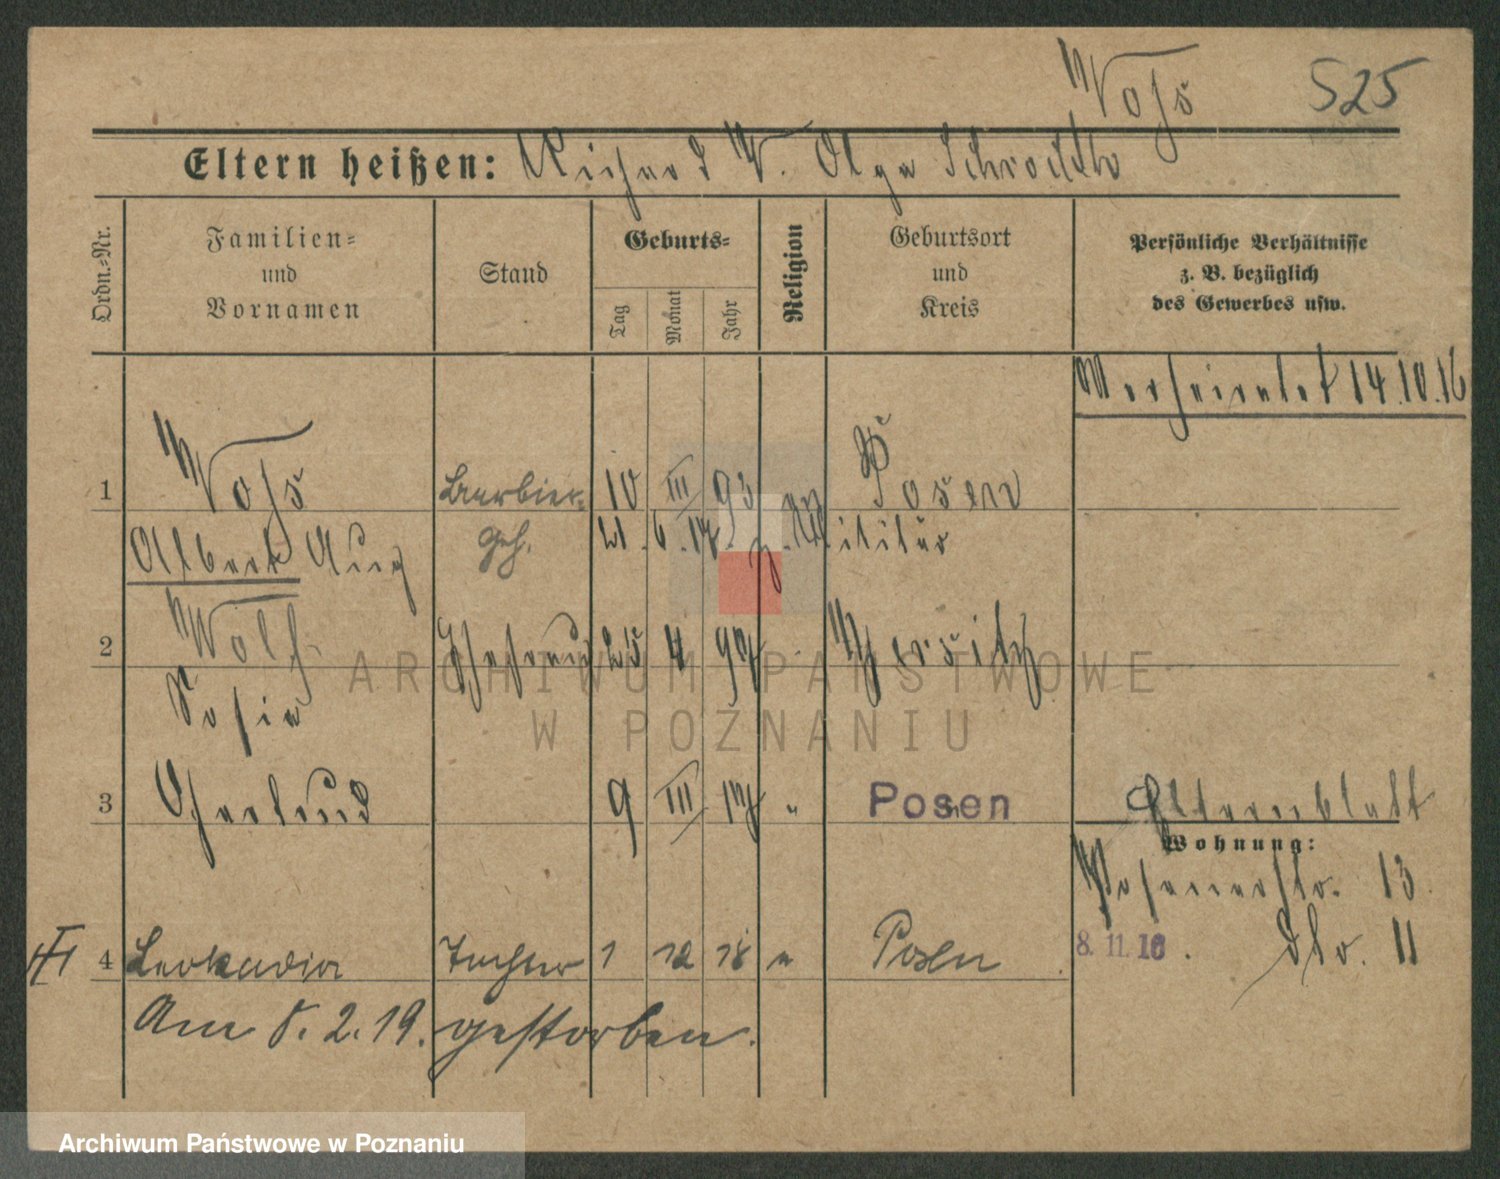 Voss 525
Eltern heißen: Richard V. Olga Schroedter
Ordn.-Nr.
Familien-
und
Vornamen
Stand
Geburts-
Tag
Monat
Jahr
Religion
Geburtsort
und
Kreis
Persönliche Verhältnisse
z. B. bezüglich
des Gewerbes usw.
Verheiratet 14.10.16
1 Voss Barbier- 10 III 93 Posen
Albert Aug geh. 21. 6. 17. z. Militär
2 Wolf Ehefrau 25 4 97 Jersitz
Sofie
3 Gertrud 9 III 17 " Posen
Elternblatt
Wohnung:
Posenerstr. 13
8. 11. 16. dto. 11
4 Leokadia Tochter 1 12 18 " Posen
Am 5. 2. 19. gestorben.
ARCHIWUM PAŃSTWOWE
W POZNANIU
Archiwum Państwowe w Poznaniu